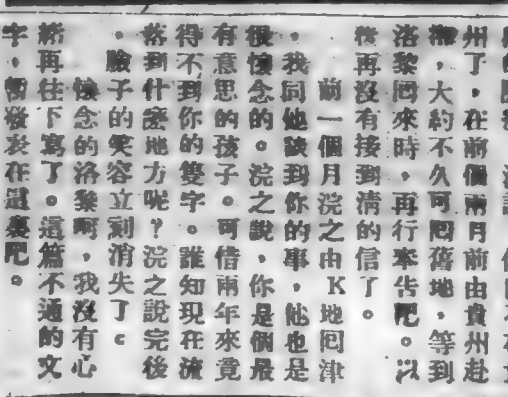 州了，在前個兩月前由貴州赴
，大約不久可回舊地，等到
洛黎回來時，再行奉告吧。以
後再沒有接到清的信了。
前一個月浣之由K地回津
，我同他談到你的事，他也是
很懷念的。浣之說，你是個最
有意思的孩子。可借兩年來竟
得不到你的隻字。誰知現在流
落到什麼地方呢？浣之說完後
，臉子的笑容立刻消失了。
懷念的洛黎啊，我沒有心
緒再往下寫了。這篇不通的文
字，暫發表在這裏吧。